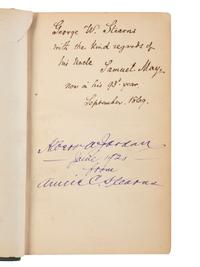 George W. Stearns
with the kind regards of
his Uncle Samuel May,
now in his 93d year
September. 1869.
Jordan
June, 1921
from
Annie C. Stearns